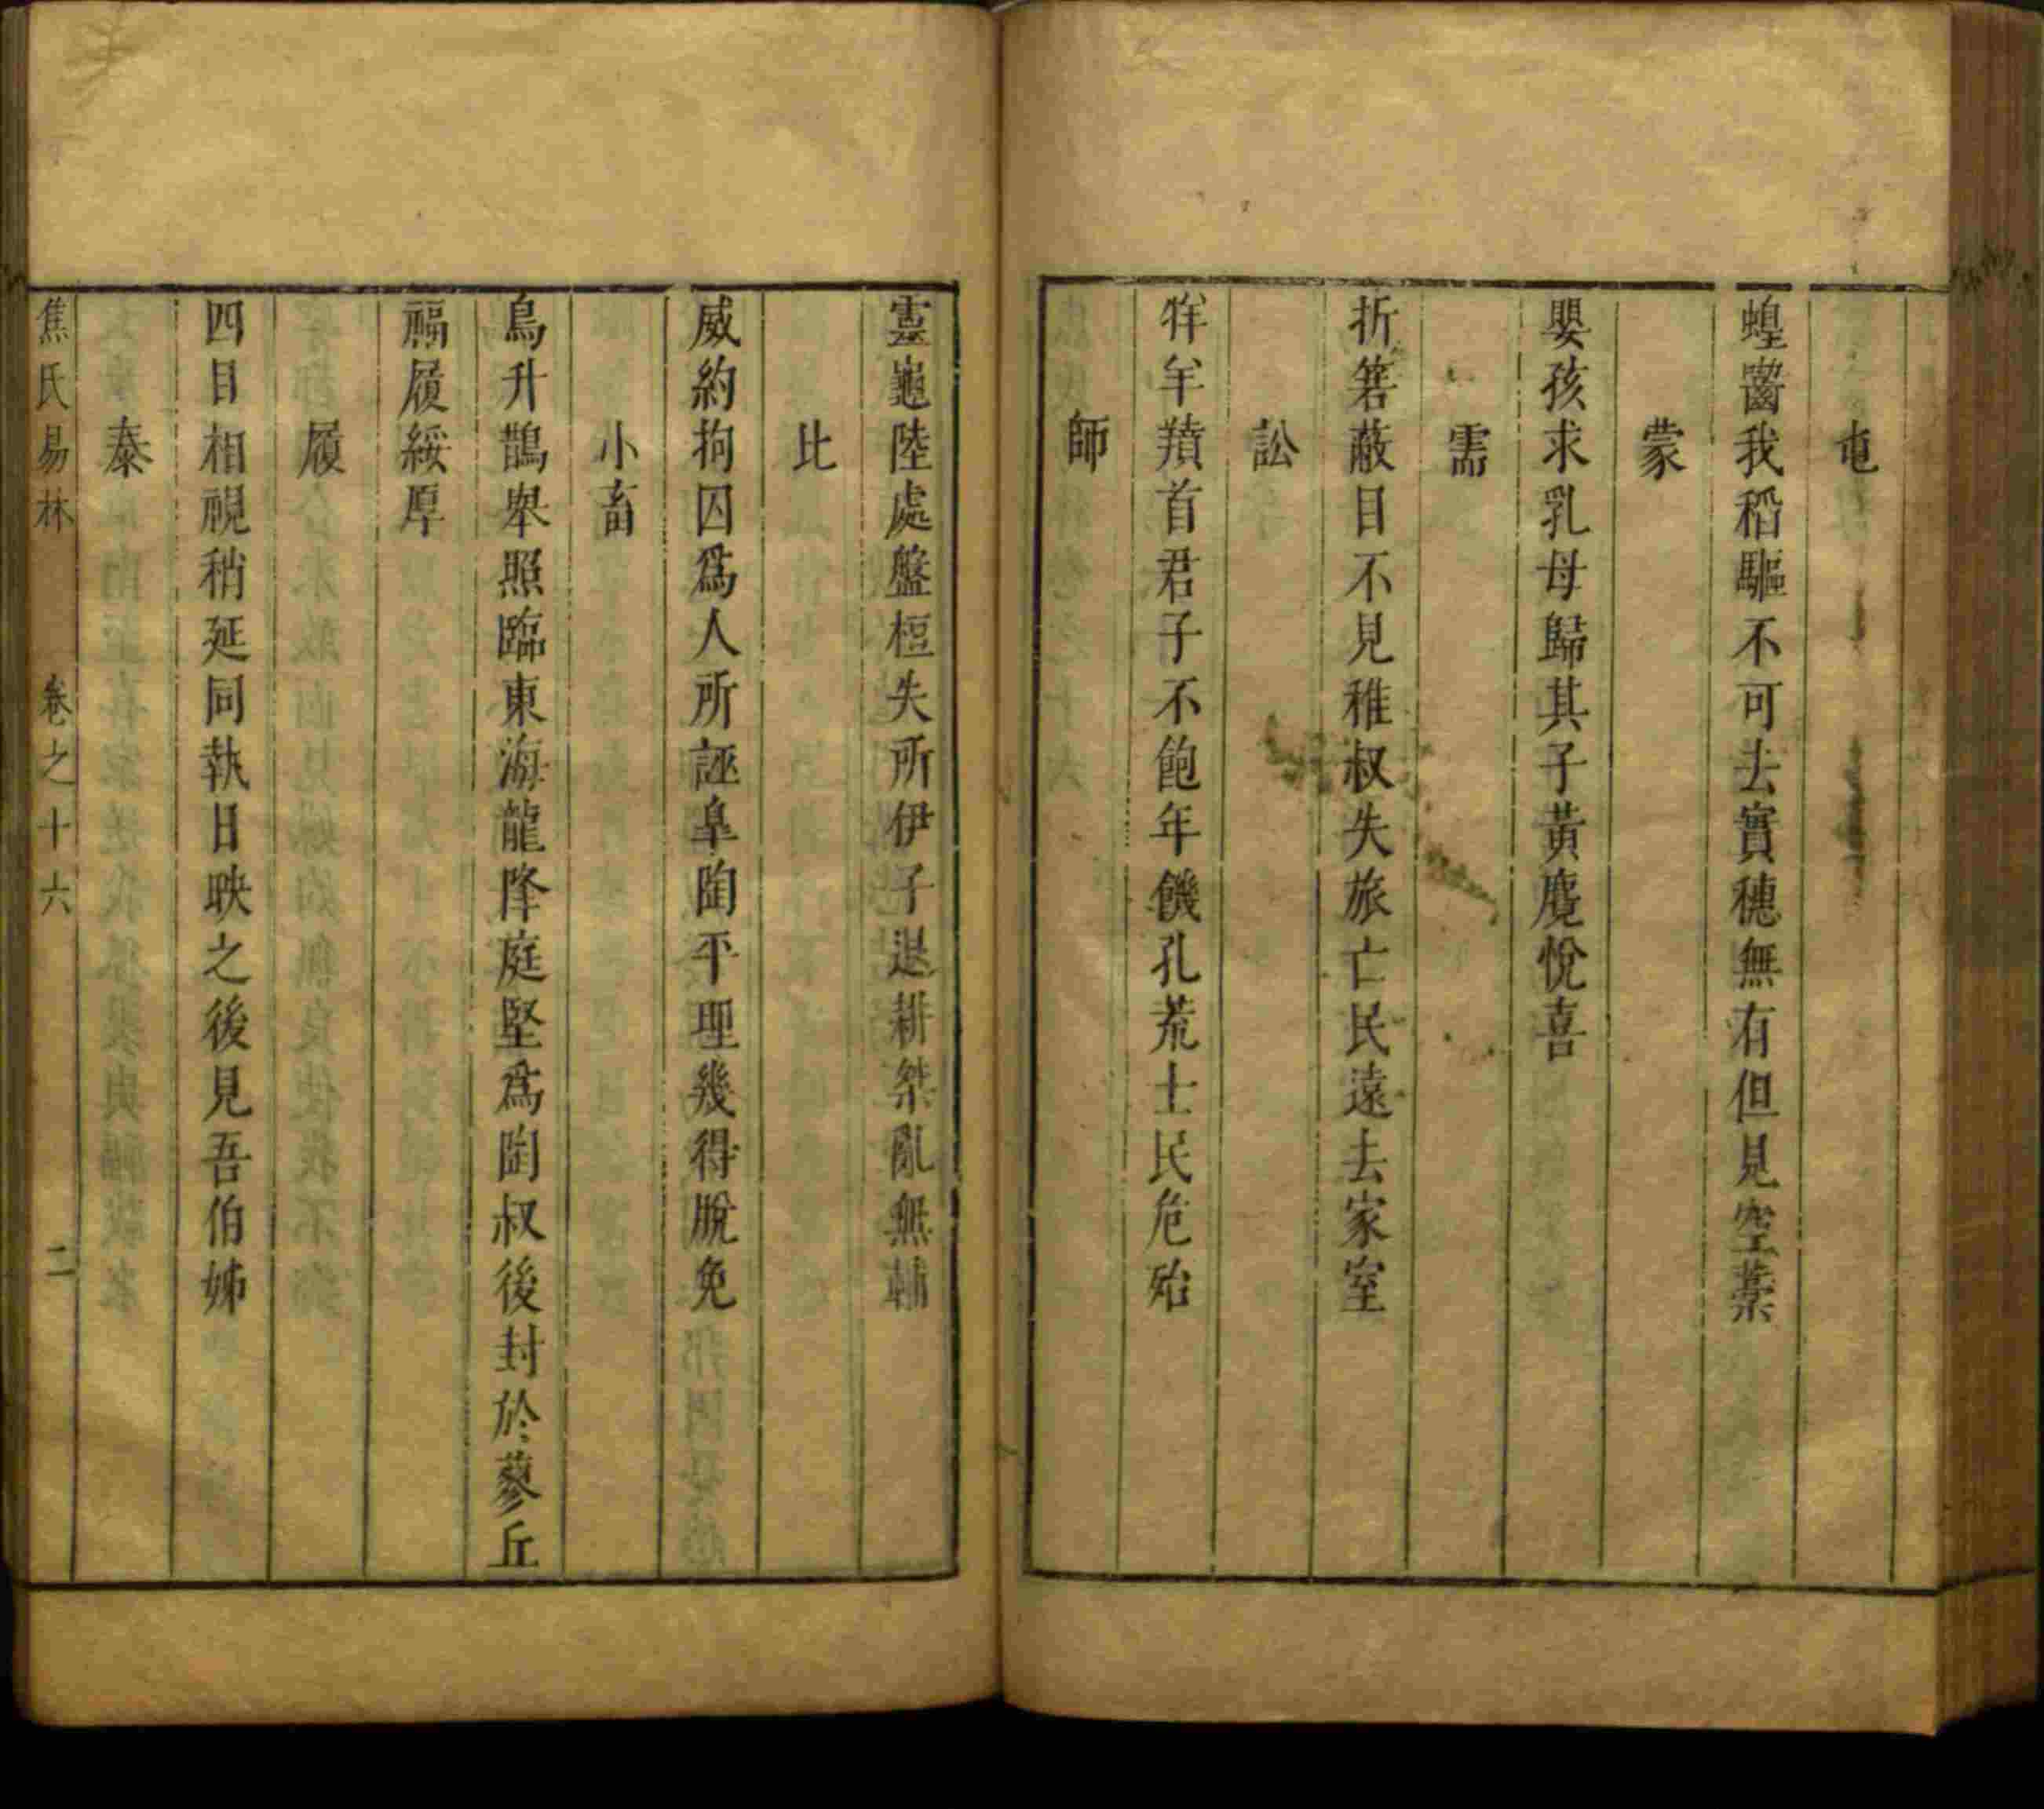 屯
蝗齧我稻驅不可去實穗無有但見空藁
蒙
嬰孩求乳母歸其子黃麑悅喜
需
折箬蔽目不見稚叔失旅亡民遠去家室
訟
牂羊羵首君子不飽年饑孔荒士民危殆
師
靈龜陸處盤桓失所伊子退耕桀亂無輔
比
威約拘囚爲人所誣皐陶平理幾得脫免
小畜
鳥升鵲舉照臨東海龍降庭堅爲陶叔後封於蓼丘
福履綏厚
履
四目相視稍延同執日昳之後見吾伯姊
泰
焦氏易林 卷之十六 二